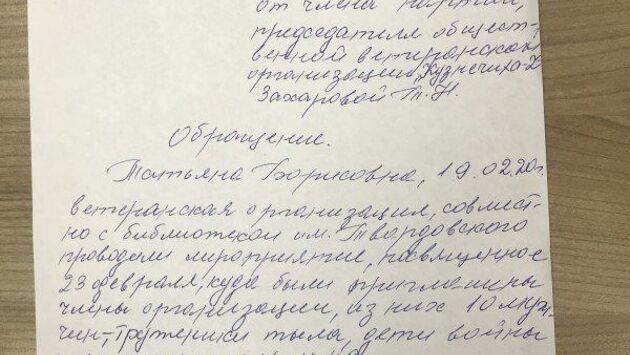 от члена партии,
председателя общест-
венной ветеранской
организации „Кузнечиха-2
Захаровой Т.Н.
Обращение.
Татьяна Борисовна, 19.02.20г.
ветеранская организация, совмест-
но с библиотекой им. Твардовского
проводили мероприятие, посвященное
23 февраля, куда были приглашены
члены организации, из них 10 муж-
чин, труженики тыла, дети войны